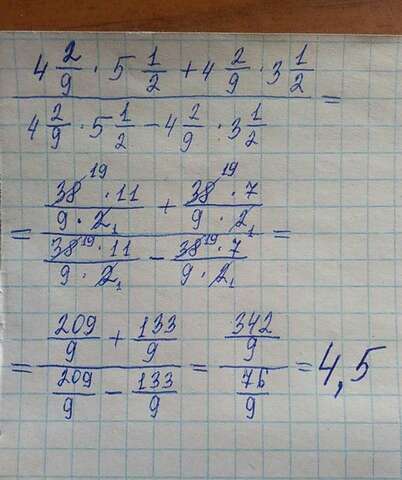 4 2/9 · 5 1/2 + 4 2/9 · 3 1/2
4 2/9 · 5 1/2 − 4 2/9 · 3 1/2 =
= 38 19 · 11 / 9 · 2 1 + 38 19 · 7 / 9 · 2 1
38 19 · 11 / 9 · 2 1 − 38 19 · 7 / 9 · 2 1 =
= 209/9 + 133/9
209/9 − 133/9 = 342/9 / 76/9 = 4,5